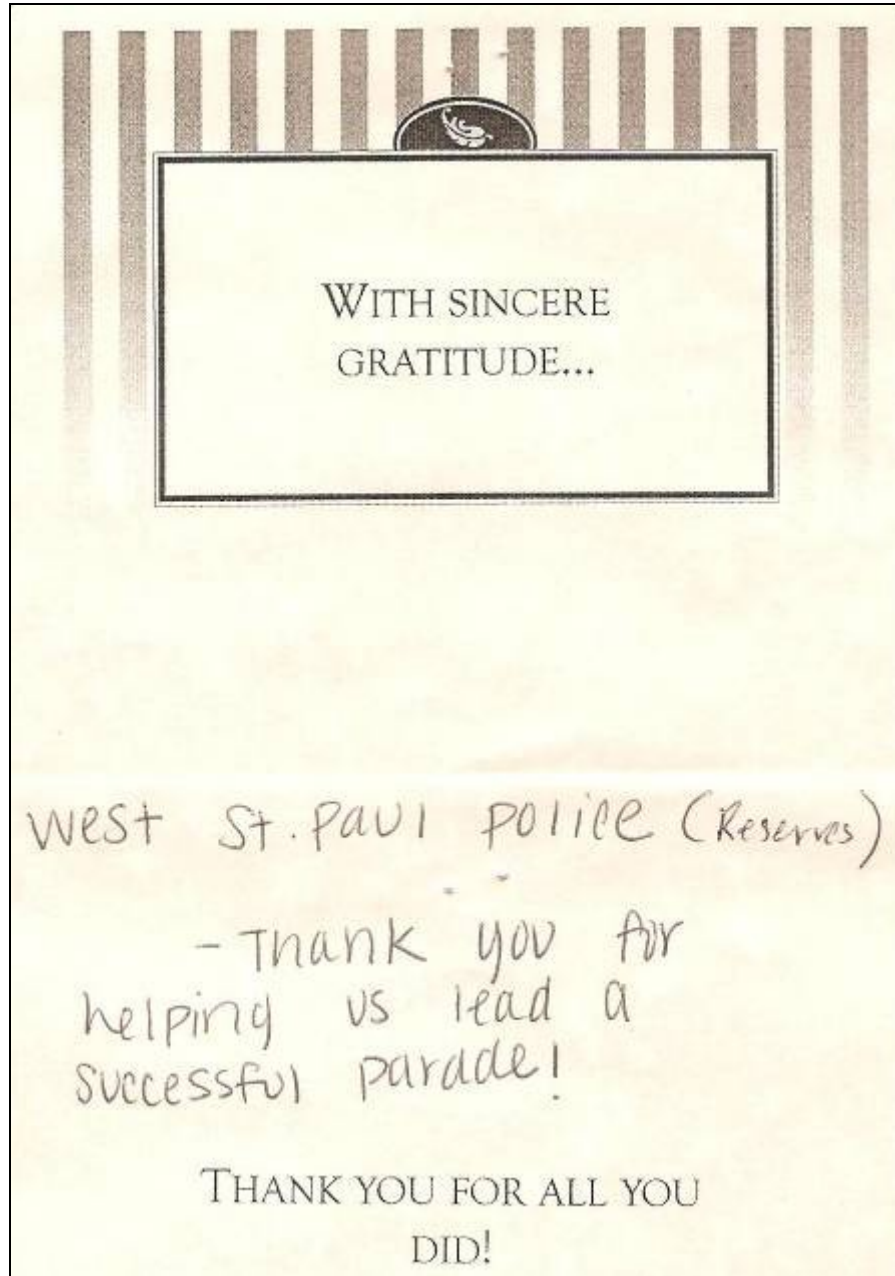 WITH SINCERE
GRATITUDE...
West St. Paul Police (Reserves)
- Thank you for
helping us lead a
successful parade!
THANK YOU FOR ALL YOU
DID!